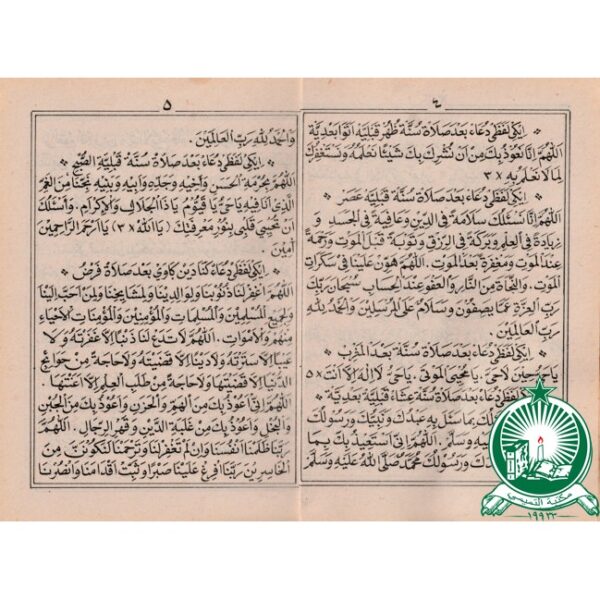 ٤
* ايكى لفظى دعاء بعد صلاة سنة ظهر قبلية اتوا بعدية
اللهم انا نعوذ بك من ان نشرك بك شيئا نعلمه ونستغفرك
لما لا نعلم به ×٣
* ايكى لفظى دعاء بعد صلاة سنة قبلية عصر *
اللهم انا نسئلك سلامة فى الدين وعافية فى الجسد و
زيادة فى العلم وبركة فى الرزق وتوبة قبل الموت ورحمة
عند الموت ومغفرة بعد الموت. اللهم هون علينا فى سكرات
الموت. والنجاة من النار والعفو عند الحساب سبحان ربك
رب العزة عما يصفون وسلام على المرسلين والحمد لله
رب العالمين.
* ايكى لفظى دعاء بعد صلاة سنة بعد المغرب *
يا حي حين لا حي. يا محيى الموتى. يا حي لا اله الا انت ×٥
ايكى لفظى دعاء بعد صلاة سنة عشاء قبلية بعدية *
لك بما سئل به عبدك ونبيك ورسولك
عليه وسلم. اللهم انى استعيذ بك بما
دك ورسولك محمد صلى الله عليه وسلم
٥
والحمد لله رب العالمين.
* ايكى لفظى دعاء بعد صلاة سنة قبلية الصبح *
اللهم بحرمة الحسن واخيه وجده وابيه وبنيه نجنا من الغم
الذى انا فيه يا حي يا قيوم يا ذا الجلال والاكرام. واسئلك
ان تحيي قلبى بنور معرفتك (يا الله ×٣) يا ارحم الراحمين
آمين.
* ايكى لفظى دعاء كنا دين كاوى بعد صلاة فرض *
اللهم اغفر لنا ذنوبنا ولوالدينا ولمشايخنا ولمن احب الينا
ولجميع المسلمين والمسلمات والمؤمنين والمؤمنات الاحياء
منهم والاموات. اللهم لا تدع لنا ذنبا الا غفرته ولا
عيبا الا سترته ولا دينا الا قضيته ولا حاجة من حوائج
الدنيا الا قضيتها ولا حاجة من طلب العلم الا اعنتها.
اللهم انى اعوذ بك من الهم والحزن واعوذ بك من الجبن
والبخل واعوذ بك من غلبة الدين وقهر الرجال. اللهم
ربنا ظلمنا انفسنا وان لم تغفر لنا وترحمنا لنكونن من
الخاسرين ربنا افرغ علينا صبرا وثبت اقدامنا وانصرنا
مكتبة التميمي
١٩٩٣